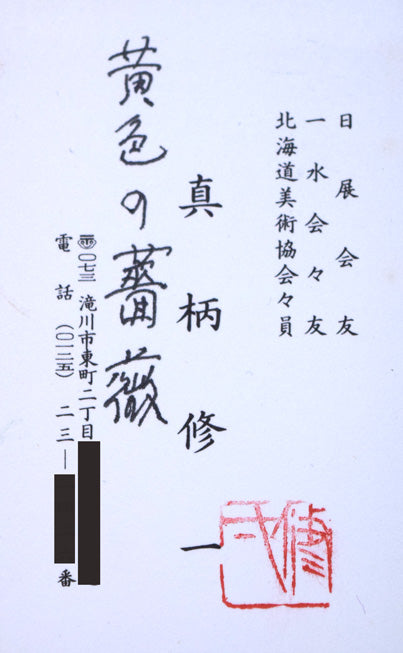 日展会友
一水会々友
北海道美術協会々員
真柄修一
黄色の薔薇
〒〇七三 滝川市東町二丁目
電話(〇一二五)二三― 番